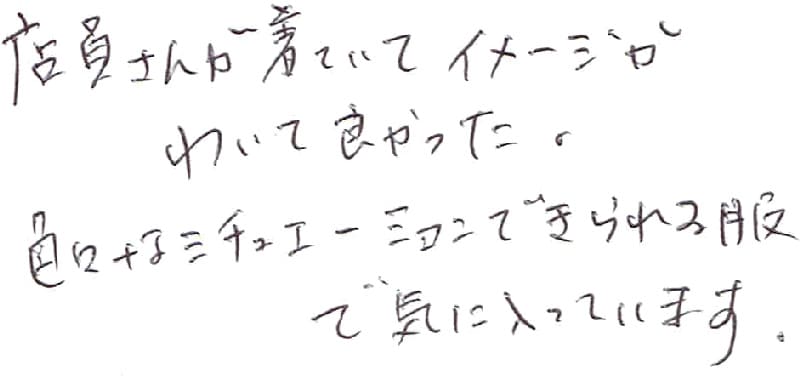 店員さんが着ていてイメージが
わいて良かった。
色々なシチュエーションできられる服
で気に入っています.